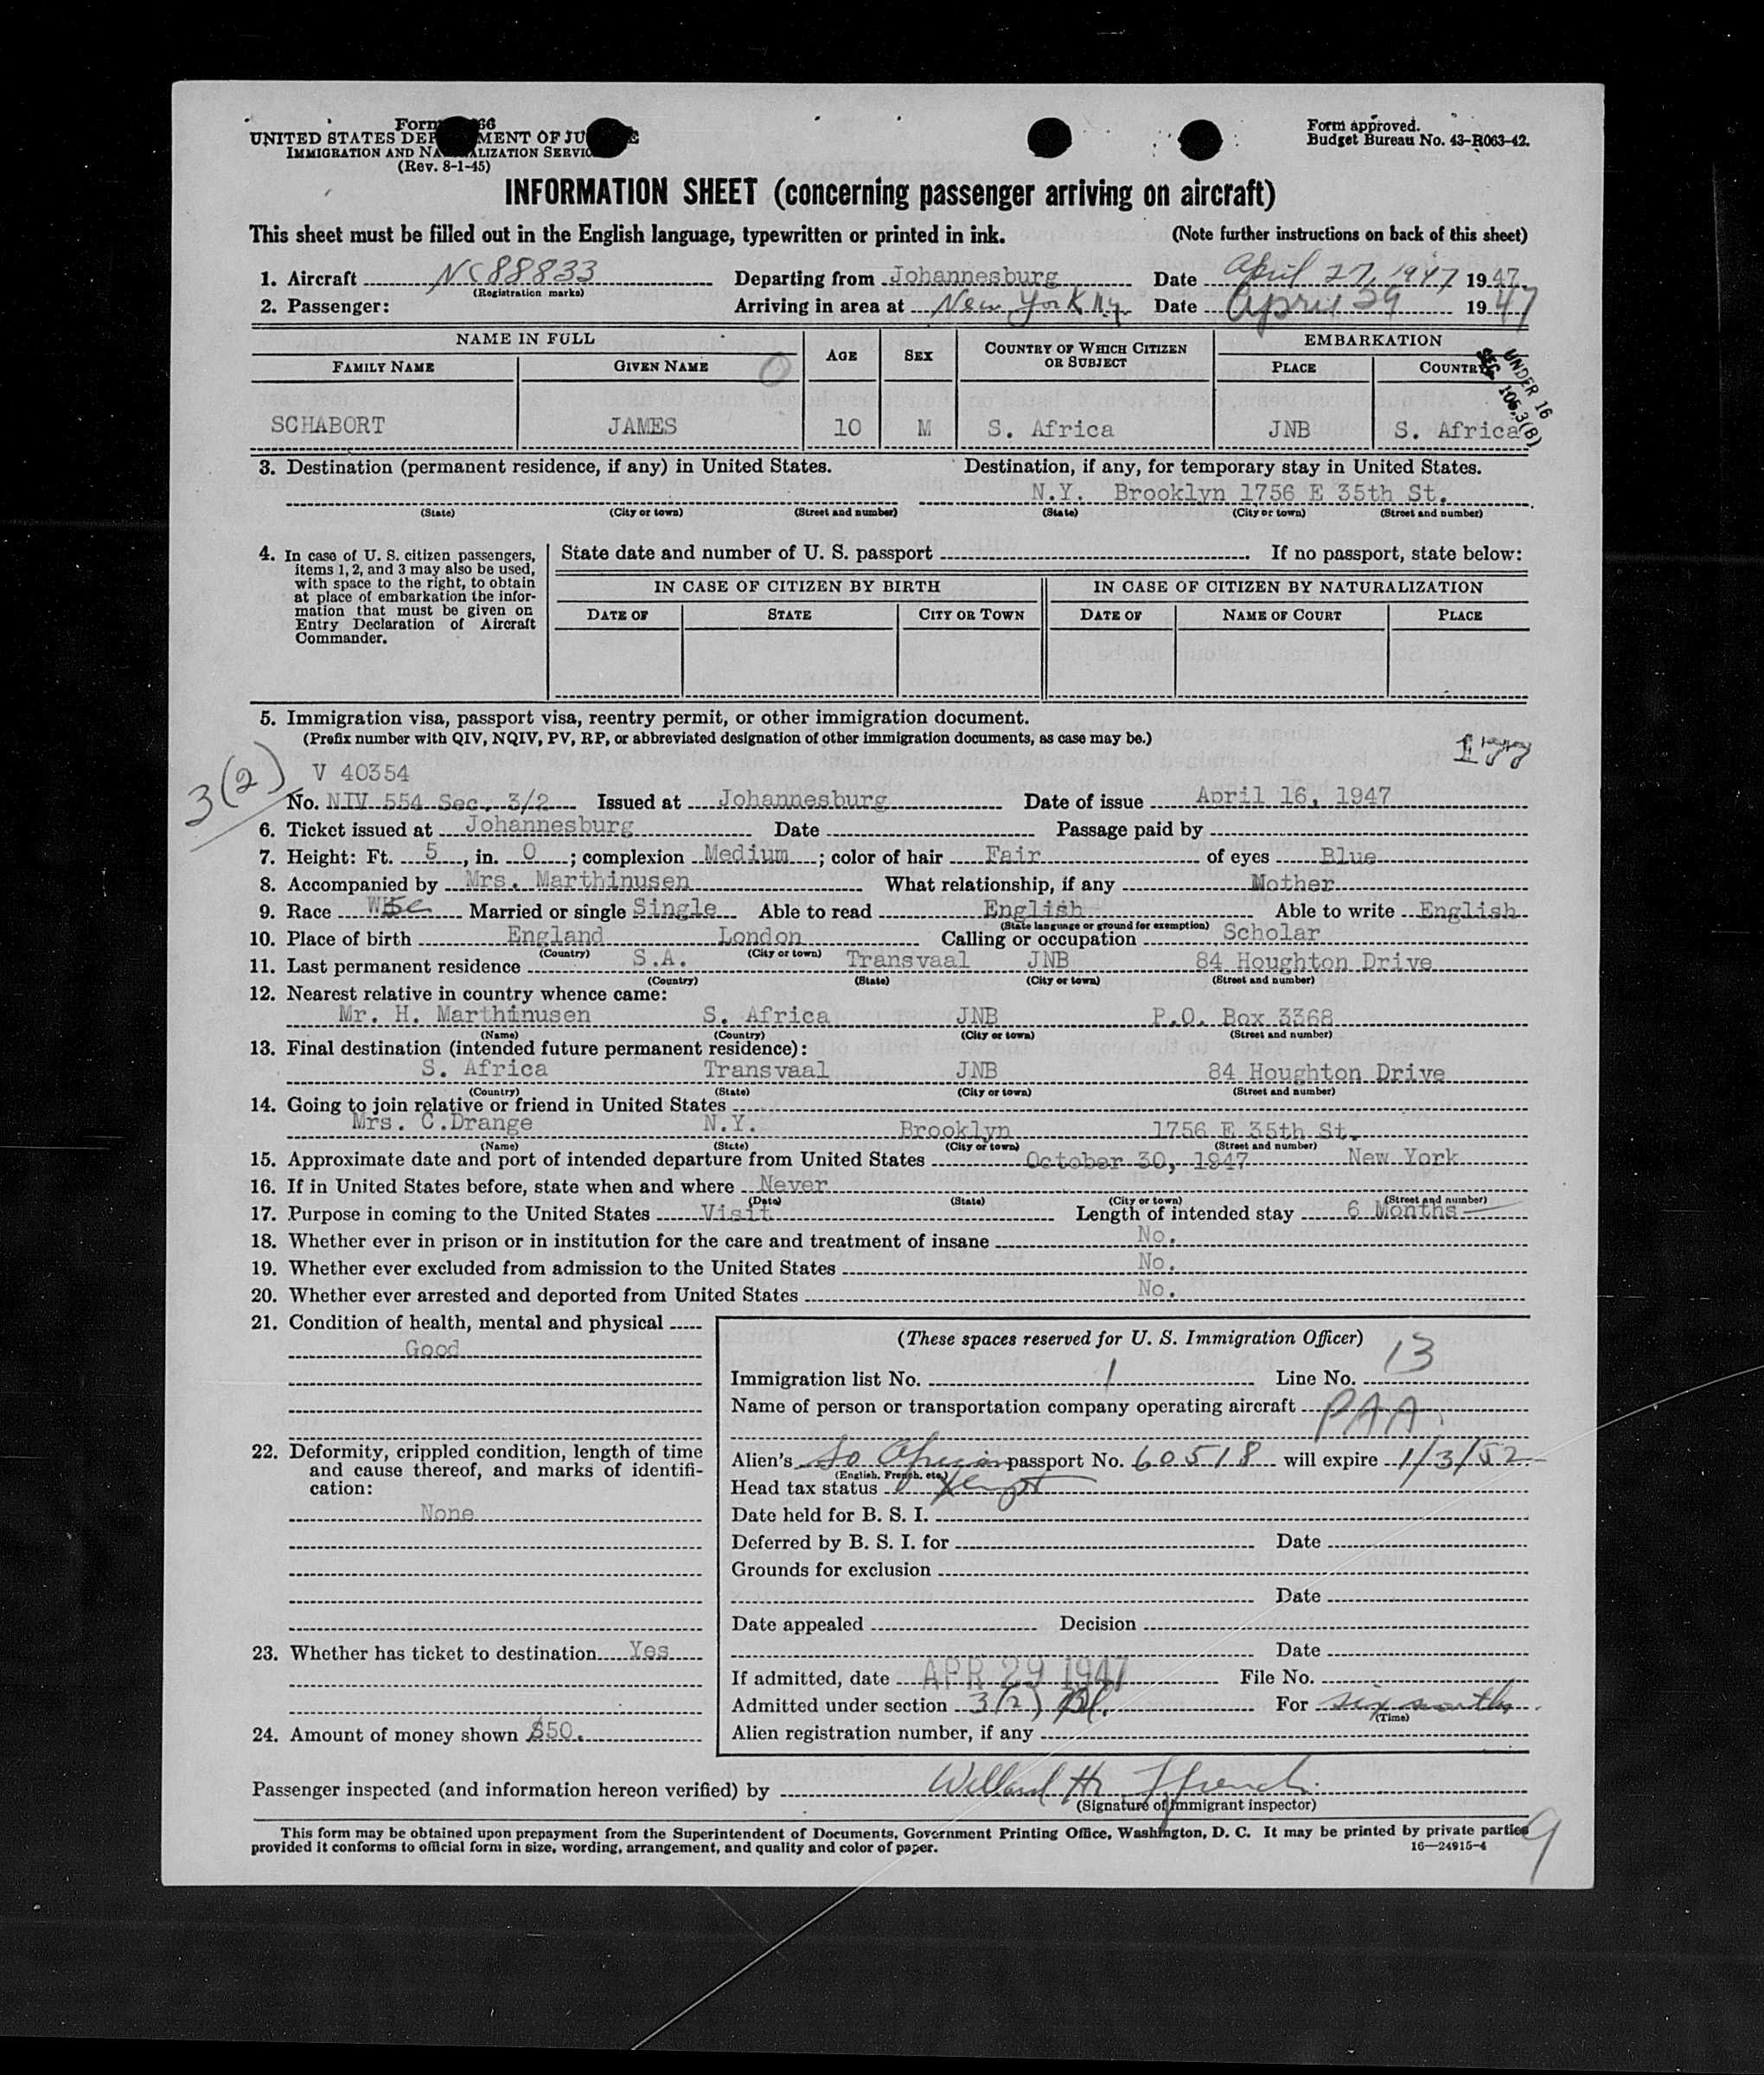 Form 66
UNITED STATES DEP MENT OF JU E
IMMIGRATION AND NA ALIZATION SERVIC
(Rev. 8-1-45)
Form approved.
Budget Bureau No. 43-R063-42.
INFORMATION SHEET (concerning passenger arriving on aircraft)
This sheet must be filled out in the English language, typewritten or printed in ink. (Note further instructions on back of this sheet)
1. Aircraft NC88833 Departing from Johannesburg Date April 27, 1947 1947
(Registration marks)
2. Passenger: Arriving in area at New York NY Date April 29 1947
NAME IN FULL AGE SEX COUNTRY OF WHICH CITIZEN OR SUBJECT EMBARKATION
FAMILY NAME GIVEN NAME 0 PLACE COUNTRY
UNDER 16
SEC 105.3(B)
SCHABORT JAMES 10 M S. Africa JNB S. Africa
3. Destination (permanent residence, if any) in United States. Destination, if any, for temporary stay in United States.
N.Y. Brooklyn 1756 E 35th St.
(State) (City or town) (Street and number) (State) (City or town) (Street and number)
4. In case of U. S. citizen passengers, items 1, 2, and 3 may also be used, with space to the right, to obtain at place of embarkation the information that must be given on Entry Declaration of Aircraft Commander.
State date and number of U. S. passport If no passport, state below:
IN CASE OF CITIZEN BY BIRTH IN CASE OF CITIZEN BY NATURALIZATION
DATE OF STATE CITY OR TOWN DATE OF NAME OF COURT PLACE
5. Immigration visa, passport visa, reentry permit, or other immigration document.
(Prefix number with QIV, NQIV, PV, RP, or abbreviated designation of other immigration documents, as case may be.)
177
3(2)
V 40354
No. NIV 554 Sec. 3/2 Issued at Johannesburg Date of issue April 16, 1947
6. Ticket issued at Johannesburg Date Passage paid by
7. Height: Ft. 5, in. 0; complexion Medium; color of hair Fair of eyes Blue
8. Accompanied by Mrs. Marthinusen What relationship, if any Mother
9. Race Married or single Single Able to read English Able to write English
(State language or ground for exemption)
10. Place of birth England London Calling or occupation Scholar
(Country) (City or town)
11. Last permanent residence S.A. Transvaal JNB 84 Houghton Drive
(Country) (State) (City or town) (Street and number)
12. Nearest relative in country whence came:
Mr. H. Marthinusen S. Africa JNB P.O. Box 3368
(Name) (Country) (City or town) (Street and number)
13. Final destination (intended future permanent residence):
S. Africa Transvaal JNB 84 Houghton Drive
(Country) (State) (City or town) (Street and number)
14. Going to join relative or friend in United States
Mrs. C.Drange N.Y. Brooklyn 1756 E 35th St.
(Name) (State) (City or town) (Street and number)
15. Approximate date and port of intended departure from United States October 30, 1947 New York
16. If in United States before, state when and where Never
(Date) (State) (City or town) (Street and number)
17. Purpose in coming to the United States Visit Length of intended stay 6 Months
18. Whether ever in prison or in institution for the care and treatment of insane No.
19. Whether ever excluded from admission to the United States No.
20. Whether ever arrested and deported from United States No.
21. Condition of health, mental and physical
Good
22. Deformity, crippled condition, length of time
and cause thereof, and marks of identifi-
cation:
None
23. Whether has ticket to destination Yes
24. Amount of money shown $50.
(These spaces reserved for U. S. Immigration Officer)
Immigration list No. 1 Line No. 13
Name of person or transportation company operating aircraft PAA
Alien's So African passport No. 60518 will expire 1/3/52
(English, French, etc.)
Head tax status Exempt
Date held for B. S. I.
Deferred by B. S. I. for Date
Grounds for exclusion
Date
Date appealed Decision
Date
If admitted, date APR 29 1947 File No.
Admitted under section 3(2) For six months
(Time)
Alien registration number, if any
Passenger inspected (and information hereon verified) by Willard H. Ffrench
(Signature of immigrant inspector)
This form may be obtained upon prepayment from the Superintendent of Documents, Government Printing Office, Washington, D. C. It may be printed by private parties
provided it conforms to official form in size, wording, arrangement, and quality and color of paper. 16—24915-4
9